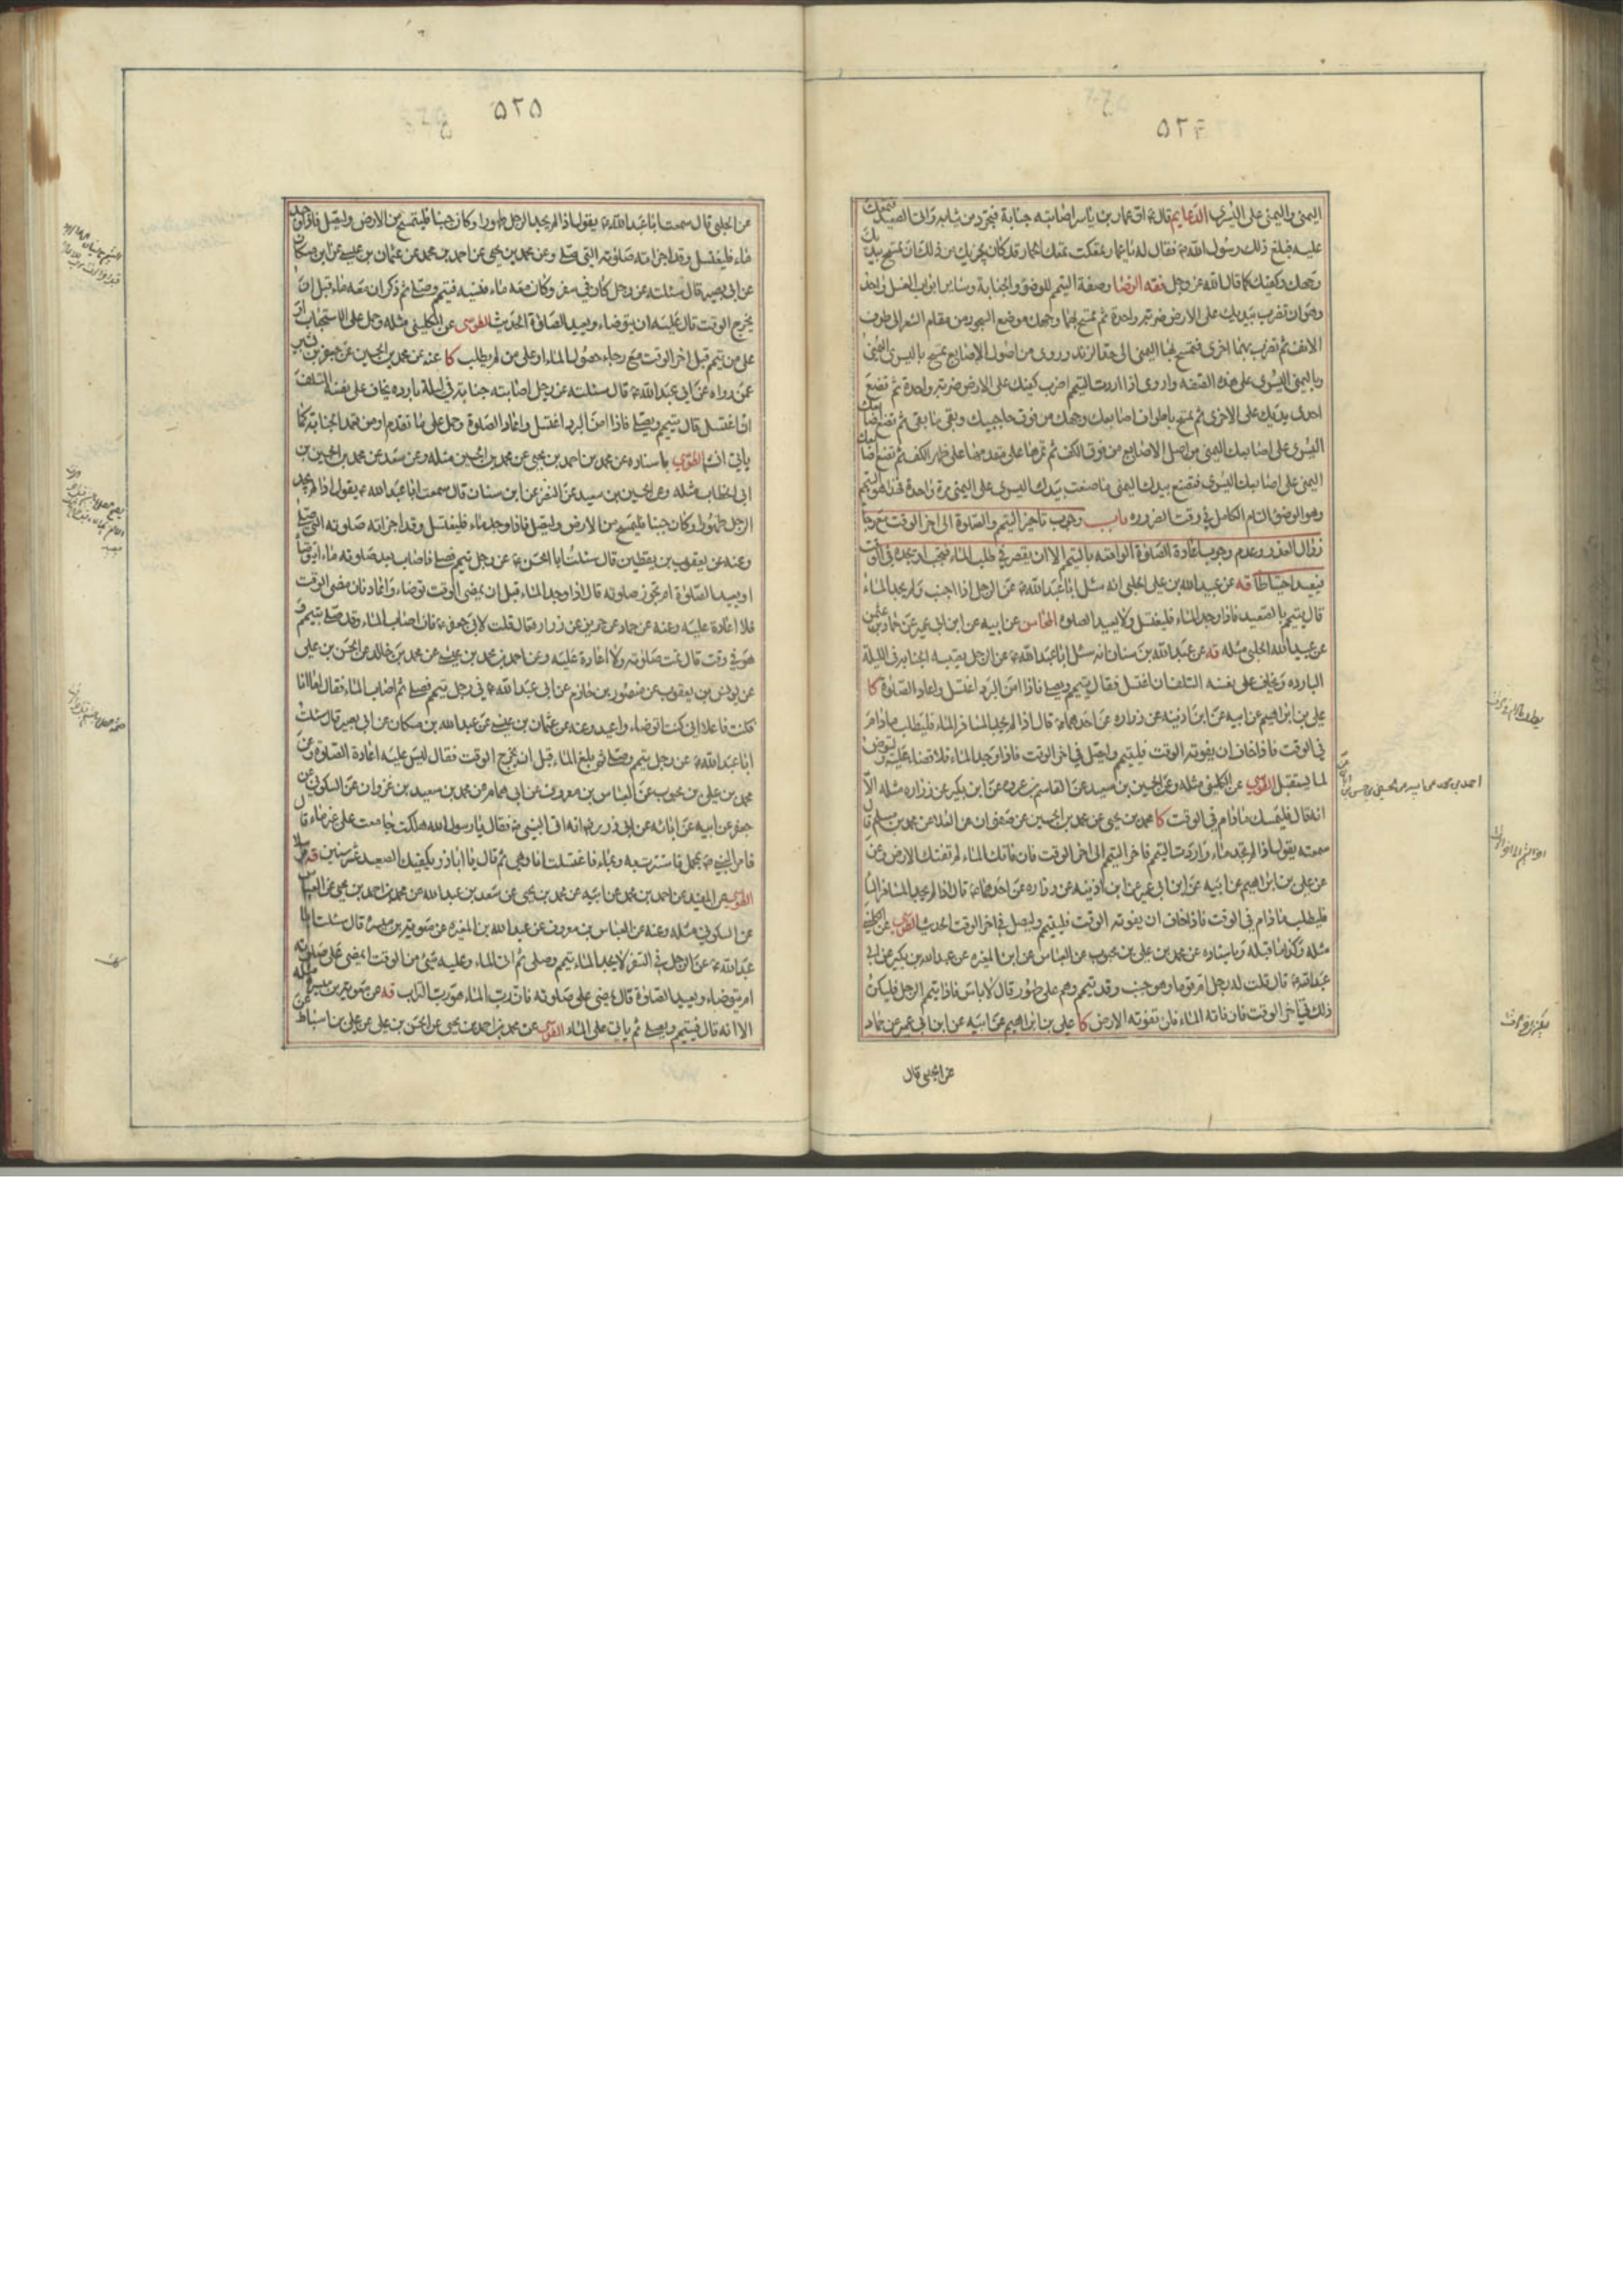 ۵۲۴
اليمنى واليمنى على اليسرى الدعايم قال ع اتى عمار بن ياسر اصابته جنابة فتجرد من ثيابه واتى الصعيد فتمعك
عليه فبلغ ذلك رسول الله ص فقال له يا عمار تمعكت تمعك الحمار قد كان يجزيك من ذلك ان تمسح بيديك
وجهك وكفيك كما قال الله عز وجل فقه الرضا وصفة التيمم للوضوء والجنابة وساير ابواب الغسل واحد
وهو ان تضرب بيديك على الارض ضربة واحدة ثم تمسح بهما وجهك موضع السجود من مقام الشعر الى طرف
الانف ثم تضرب بهما اخرى فتمسح بها اليمنى الى حد الزند وروى من اصول الاصابع تمسح باليسرى اليمنى
وباليمنى اليسرى على هذه الصفة واروى اذا اردت التيمم اضرب كفيك على الارض ضربة واحدة ثم تضع
احدى يديك على الاخرى ثم تمسح باطراف اصابعك وجهك من فوق حاجبيك وبقى ما بقى ثم تضع اصابعك
اليسرى على اصابعك اليمنى من اصل الاصابع من فوق الكف ثم تمرها على مقدمها على ظهر الكف ثم تضع اصابعك
اليمنى على اصابعك اليسرى فتصنع بيدك اليمنى ما صنعت بيدك اليسرى على اليمنى مرة واحدة فهذا هو التيمم
وهو الوضوء التام الكامل في وقت الضرورة باب وجوب تاخير التيمم والصلوة الى اخر الوقت مع رجاء
زوال العذر وعدم وجوب اعادة الصلوة الواقعة بالتيمم الا ان يقصر في طلب الماء فتجب او تجده في الوقت
فيعيد احتياطا قه عن عبيد الله بن على الحلبى انه سئل ابا عبد الله ع عن الرجل اذا اجنب ولم يجد الماء
قال يتيمم بالصعيد فاذا وجد الماء فليغتسل ولا يعيد الصلوة المحاسن عن ابيه عن ابن ابى عمير عن حماد بن عثمن
عن عبيد الله الحلبى مثله قه عن عبد الله بن سنان انه سئل ابا عبد الله ع عن الرجل يصيبه الجنابة في الليلة
الباردة ويخاف على نفسه التلف ان اغتسل فقال يتيمم ويصلى فاذا امن البرد اغتسل واعاد الصلوة كا
على بن ابراهيم عن ابيه عن ابن اذينة عن زرارة عن احدهما ع قال اذا لم يجد المسافر الماء فليطلب ما دام
في الوقت فاذا خاف ان يفوته الوقت فليتيمم وليصل في اخر الوقت فاذا وجد الماء فلا قضاء عليه وليتوضأ
لما يستقبل الطوسى عن الكلينى مثله وعن الحسين بن سعيد عن القاسم بن عروة عن ابن بكير عن زرارة مثله الا
انه قال فليمسك ما دام في الوقت كا محمد بن يحيى عن محمد بن الحسين عن صفوان عن العلا عن محمد بن مسلم قال
سمعته يقول اذا لم تجد ماء واردت التيمم فاخر التيمم الى اخر الوقت فان فاتك الماء لم تفتك الارض وعن
عن على بن ابراهيم عن ابيه عن ابن ابى عمير عن ابن اذينة عن زرارة عن احدهما ع قال اذا لم يجد المسافر الماء
فليطلب ما دام في الوقت فاذا خاف ان يفوته الوقت فليتيمم وليصل في اخر الوقت الحديث الطوسى عن الكلينى
مثله وكذا ما قبله وباسناده عن محمد بن على بن محبوب عن العباس عن ابن المغيرة عن عبد الله بن بكير عن ابى
عبد الله ع قال قلت له رجل ام قوما وهو جنب وقد تيمم وهم على طهور قال لا باس فاذا تيمم الرجل فليكن
ذلك في اخر الوقت فان فاته الماء فلن تفوته الارض كا على بن ابراهيم عن ابيه عن ابن ابى عمير عن حماد
عن الحلبى قال
۵۲۵
عن الحلبى قال سمعت ابا عبد الله ع يقول اذا لم يجد الرجل طهورا وكان جنبا فليتمسح من الارض وليصل فاذا وجد
ماء فليغتسل وقد اجزاته صلوته التى صلى وعن محمد بن يحيى عن احمد بن محمد عن عثمان بن عيسى عن ابن مسكان
عن ابى بصير قال سئلته عن رجل كان في سفر وكان معه ماء فنسيه فتيمم وصلى ثم ذكر ان معه ماء قبل ان
يخرج الوقت قال عليه ان يتوضاء ويعيد الصلوة الحديث الطوسى عن الكلينى مثله وحمل على الاستحباب او
على من تيمم قبل اخر الوقت مع رجاء حصول الماء او على من لم يطلب كا عنه عن محمد بن الحسين عن جعفر بن بشير
عمن رواه عن ابى عبد الله ع قال سئلته عن رجل اصابته جنابة في ليلة باردة يخاف على نفسه التلف
ان اغتسل قال يتيمم ويصلى فاذا امن البرد اغتسل واعاد الصلوة وحمل على ما تقدم او من تعمد الجنابة كما
ياتى انشا الطوسى باسناده عن محمد بن احمد بن يحيى عن محمد بن الحسين مثله وعن سعد عن محمد بن الحسين بن
ابى الخطاب مثله وعن الحسين بن سعيد عن النضر عن ابن سنان قال سمعت ابا عبد الله ع يقول اذا لم يجد
الرجل طهورا وكان جنبا فليمسح من الارض وليصل فاذا وجد ماء فليغتسل وقد اجزاته صلوته التى صلى
وعنه عن يعقوب بن يقطين قال سئلت ابا الحسن ع عن رجل تيمم فصلى فاصاب بعد صلوته ماء ايتوضأ
او يعيد الصلوة ام تجوز صلوته قال اذا وجد الماء قبل ان يمضى الوقت توضاء واعاد فان مضى الوقت
فلا اعادة عليه وعنه عن حماد عن حريز عن زرارة قال قلت لابى جعفر ع فان اصاب الماء وقد صلى بتيمم
وهو في وقت قال تمت صلوته ولا اعادة عليه وعن احمد بن محمد بن عيسى عن محمد بن خالد عن الحسن بن على
عن يونس بن يعقوب عن منصور بن حازم عن ابى عبد الله ع في رجل تيمم فصلى ثم اصاب الماء فقال اما انا
فكنت فاعلا انى كنت اتوضاء واعيد وعنه عن عثمان بن عيسى عن عبد الله بن مسكان عن ابى بصير قال سئلت
ابا عبد الله ع عن رجل تيمم وصلى ثم بلغ الماء قبل ان يخرج الوقت فقال ليس عليه اعادة الصلوة وعن
محمد بن على بن محبوب عن العباس بن معروف عن ابى همام عن محمد بن سعيد بن غزوان عن السكونى عن
جعفر عن ابيه عن ابائه عن ابى ذر رض انه اتى النبى ص فقال يا رسول الله هلكت جامعت على غير ماء قال
فامر النبى ص بمحمل فاستترت به وبماء فاغتسلت انا وهى ثم قال يا اباذر يكفيك الصعيد عشر سنين قه مرسلا
الطوسى عن المفيد عن احمد بن محمد عن ابيه عن محمد بن يحيى عن سعد بن عبد الله عن محمد بن احمد بن يحيى عن العباس
عن السكونى مثله وعنه عن العباس بن معروف عن عبد الله بن المغيرة عن معوية بن ميسرة قال سئلت ابا
عبد الله ع عن الرجل في السفر لا يجد الماء تيمم وصلى ثم اتى الماء وعليه شئ من الوقت ايمضى على صلوته
ام يتوضاء ويعيد الصلوة قال يمضى على صلوته فان رب الماء هو رب التراب قه عن معوية بن ميسرة مثله
الا انه قال فيتيمم ويصلى ثم ياتى على الماء الطوسى عن محمد بن احمد بن يحيى عن الحسن بن على عن على بن اسباط عن